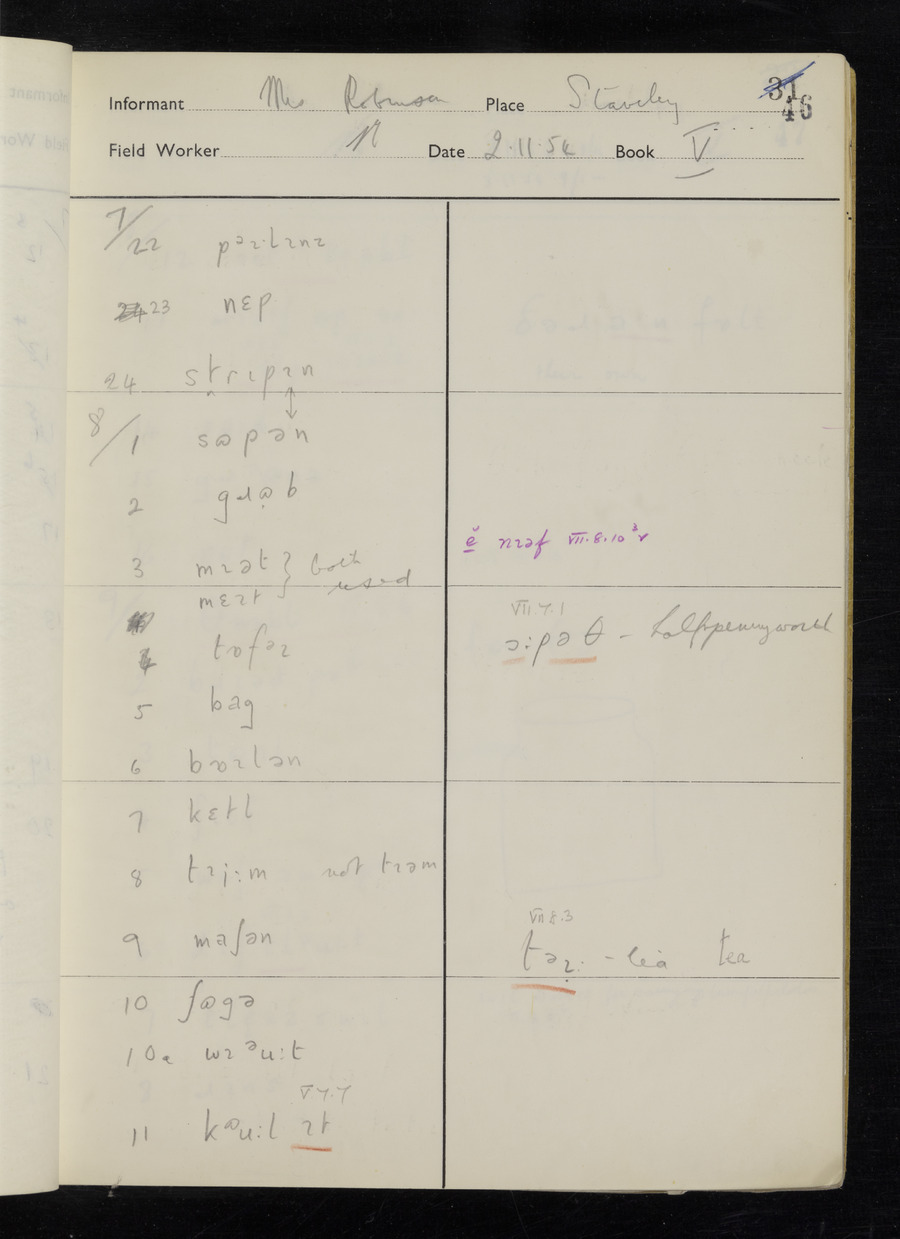 31
46
Informant Mrs Robinson Place Staveley
Field Worker N Date 2.11.54 Book V
7/22 pəɪlɪnɪ
24 23 nɛp
24 strɪpɪn
↕
8/1 sɷpən
2 gɹɷ̣b
3 mɪət } both
mɛɪt used
4 tɒfəɪ
5 bag
6 bɒɪlən
7 kɛtl
8 tɪj:m not tɪəm
9 maʃən
10 ʃɷgə
10a wɪ ᵊu:t
V 7.7
11 kᵊu:l ɪt
ĕ nɪəf VII.8.10
VII 7.1
ɔ:pəθ - halfpennyworth
VII 8.3
təɪ: - tea